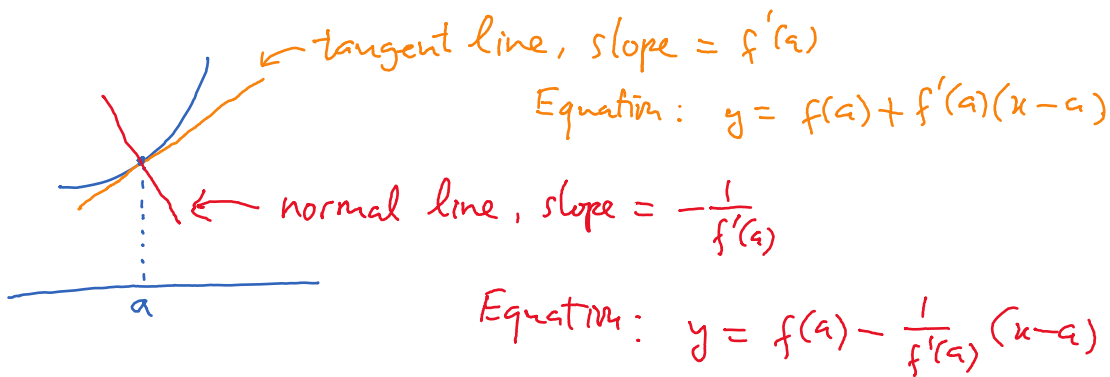 tangent line, slope = f'(a)
Equation: y = f(a) + f'(a)(x-a)
normal line, slope = -1/f'(a)
a
Equation: y = f(a) - 1/f'(a) (x-a)